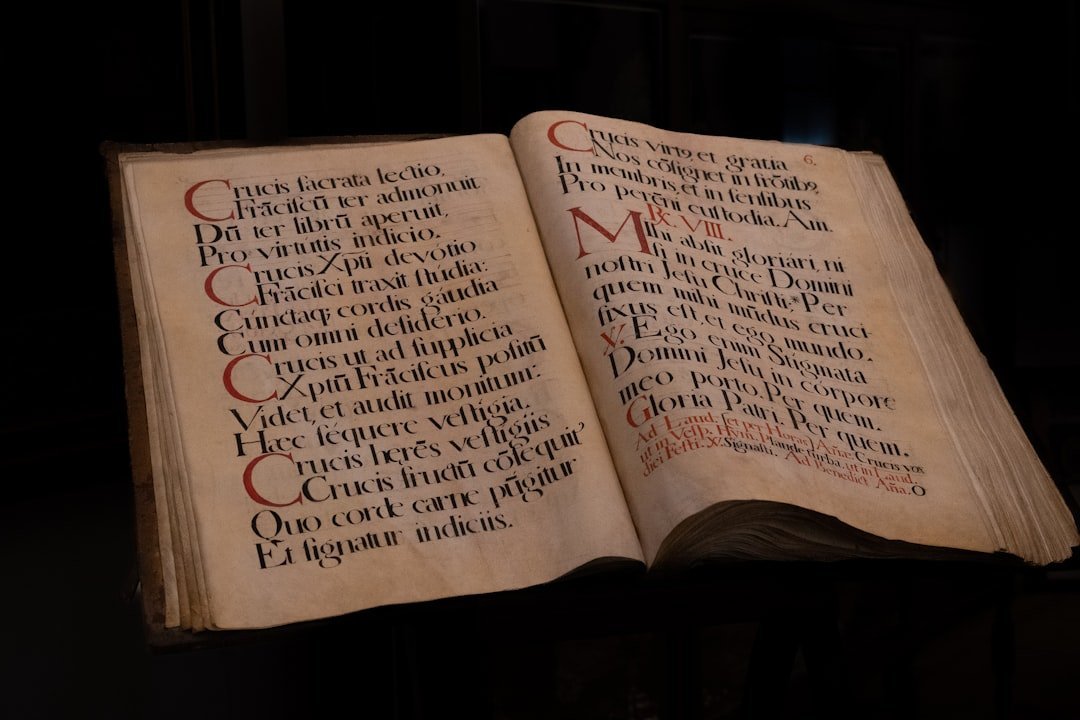 Crucis ſacrata lectio,
Frãciſcũ ter admonuit
Dũ ter librũ aperuit,
Pro virtútis indicio.
Crucis Xpti devótio
Frãciſci traxit ſtúdia:
Cúnctaq; cordis gáudia
Cum omni deſidério.
Crucis ut ad ſupplicia
Xptũ Frãciſcus poſitũ
Videt, et audit monitum:
Hæc ſéquere veſtígia.
Crucis herẽs veſtigiis
Crucis fructũ cõſequit
Quo corde carne pũgitur
Et ſignatur indiciis.
6.
Crucis virtꝰ, et gratia
Nos cõſignet in frõtibꝰ,
In membris, et in ſenſibus
Pro peréni cuſtodia. Am.
R. VIII.
Mihi abſit gloriári, ni
ſi in cruce Domini
noſtri Jeſu Chriſti;* Per
quem mihi mũdus cruci-
fixus eſt, et ego mundo.
℣. Ego enim Stigmata
Domini Jeſu in córpore
meo porto. Per quem.
Gloria Patri. Per quem.
Ad Laud. ſet per Horas Añæ Crucis vox
ut in Veſp. Hym. Plaude turba, ut in Laud.
dici Feſti. ℣. Signaſti. Ad Benedict. Aña. O